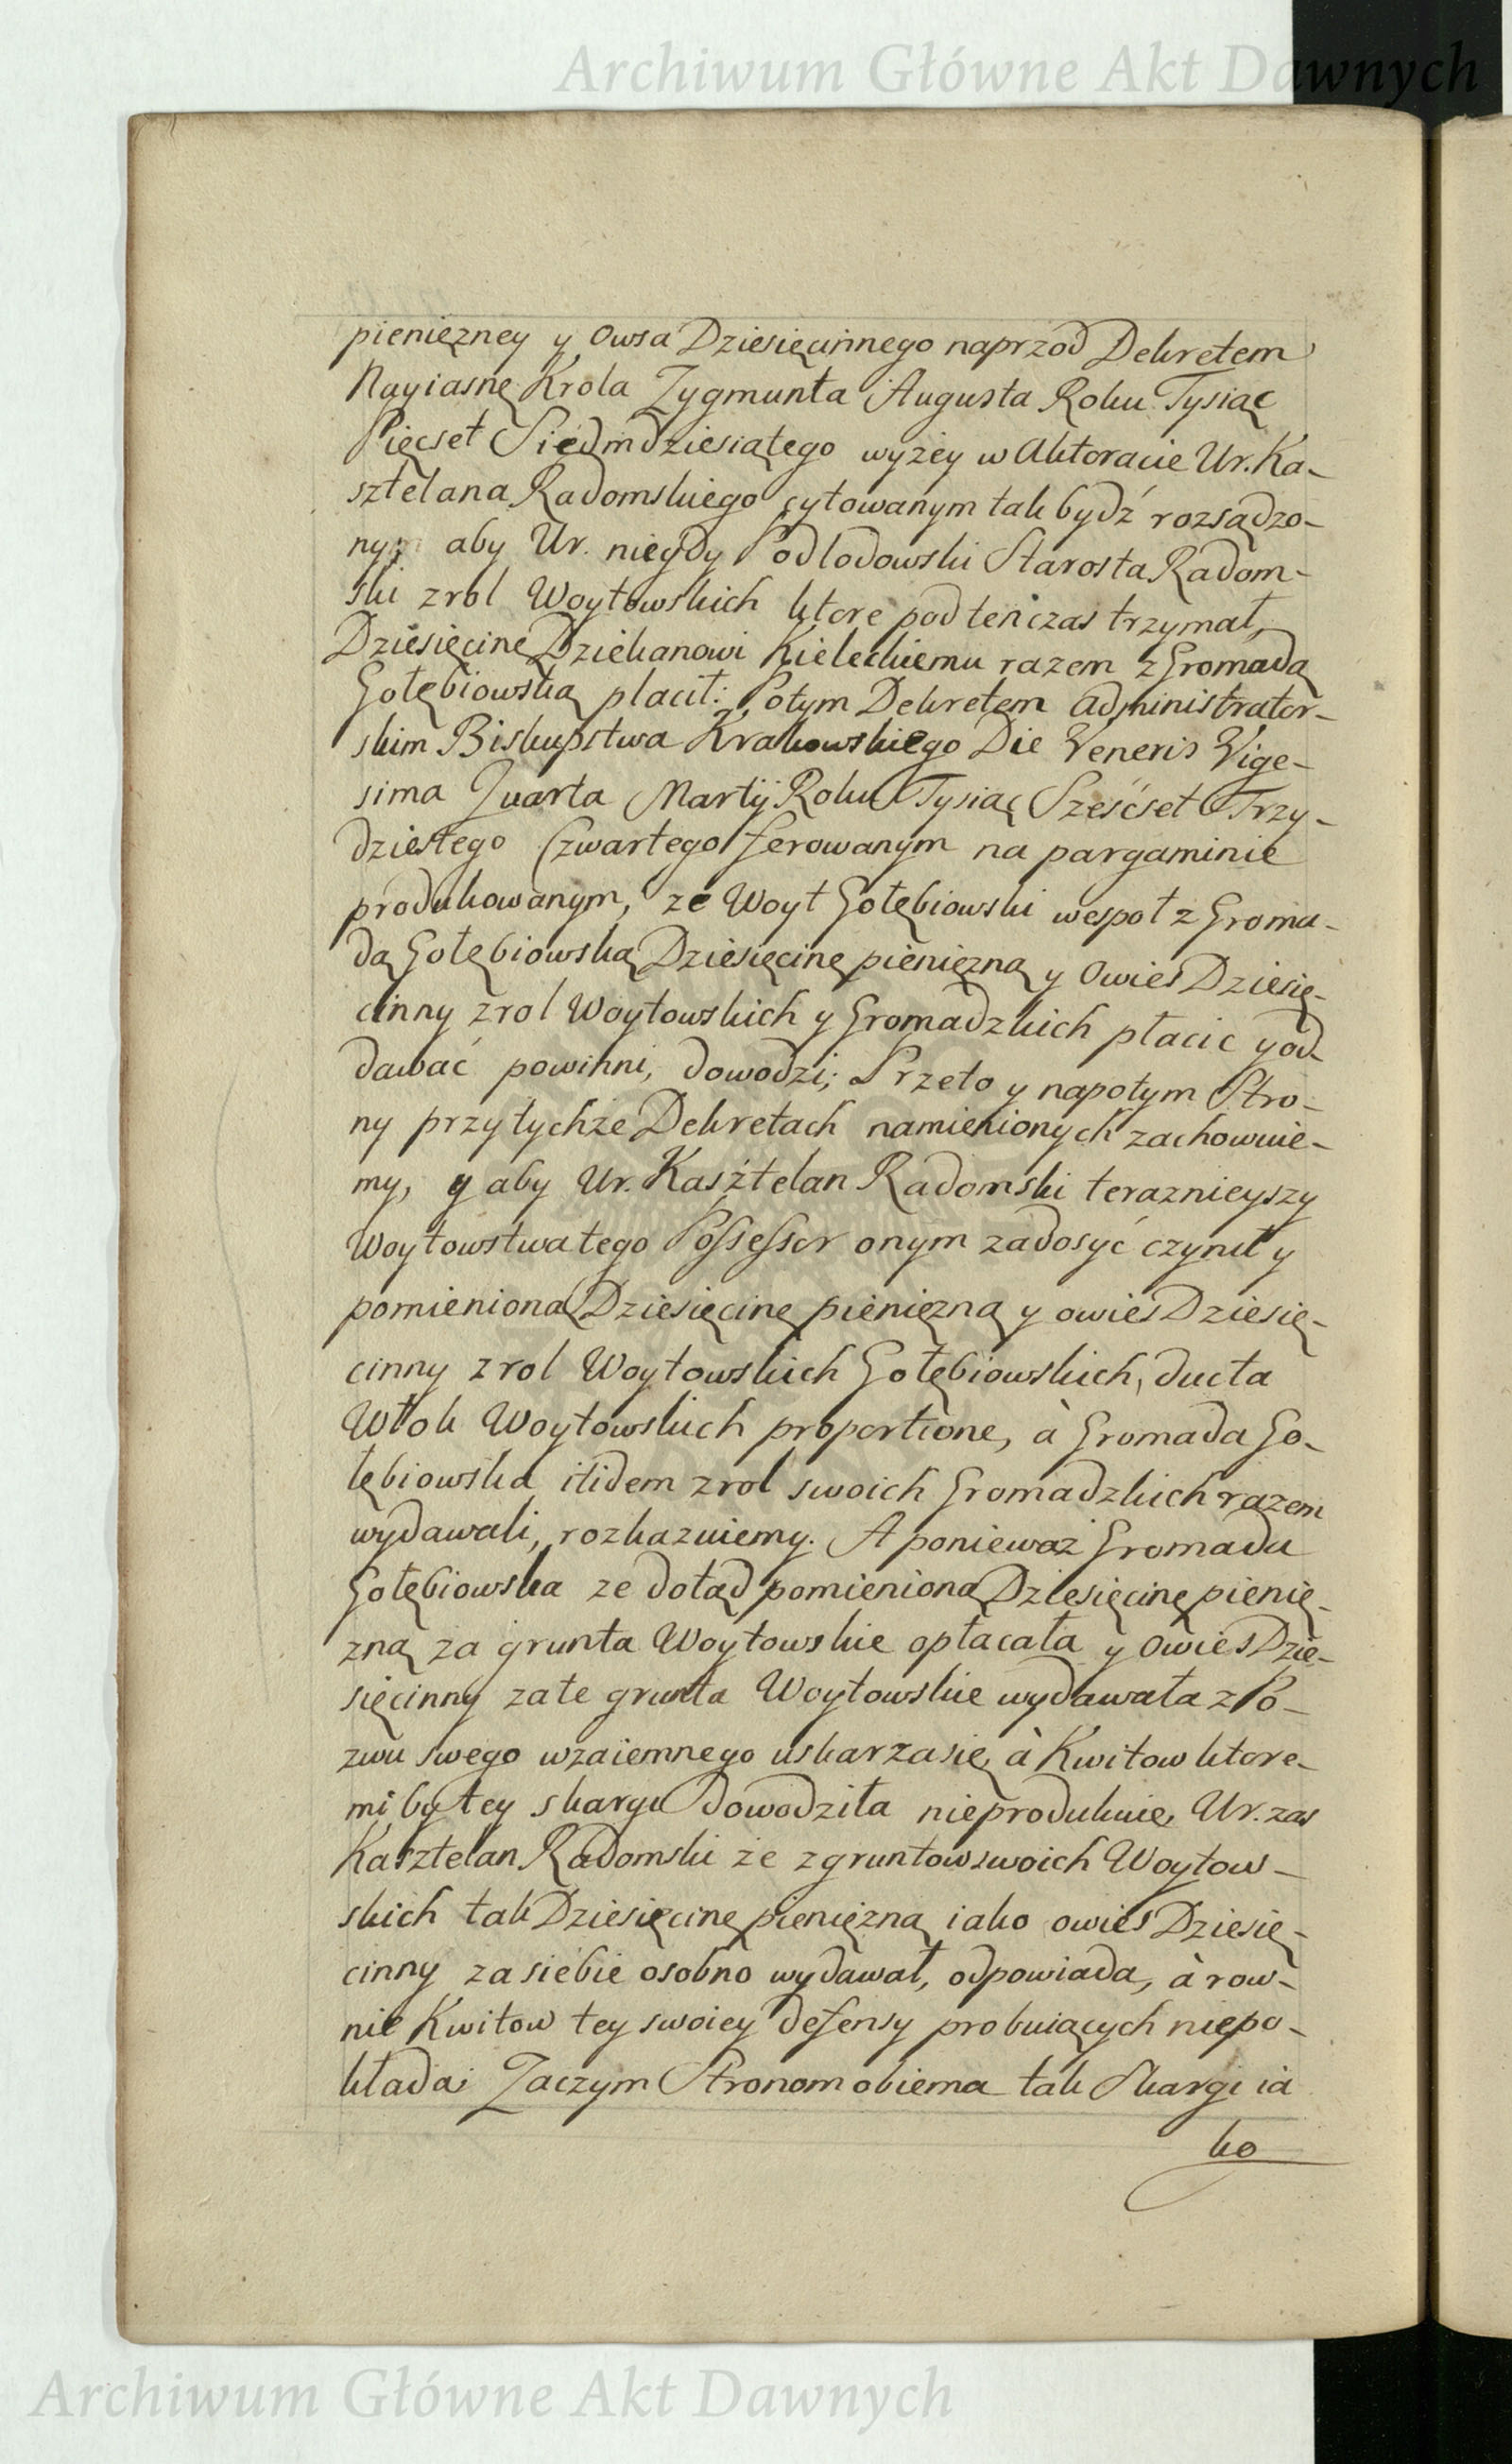 Archiwum Główne Akt Dawnych
pienięzney y Owsa Dziesięcinnego naprzod Dekretem
Nayiasnę Krola Zygmunta Augusta Roku Tysiąc
Pięcset Siedmdziesiątego wyżey w Aktoracie Ur. Ka-
sztelana Radomskiego cytowanym tak bydź rozsądzo-
nym aby Ur. niegdy Podlodowski Starosta Radom-
ski z rol Woytowskich ktore pod ten czas trzymał,
Dziesięcinę Dziekanowi Kieleckiemu razem z Gromadą
Gołębiowską płacił: Potym Dekretem Administrator-
skim Biskupstwa Krakowskiego Die Veneris Vige-
sima Quarta Martij Roku Tysiąc Sześćset Trzy-
dziestego Czwartego ferowanym na pargaminie
produkowanym, ze Woyt Gołębiowski wespoł z Groma-
dą Gołębiowską Dziesięcinę pienięzną y Owies Dziesię-
cinny z rol Woytowskich y Gromadzkich płacic y od-
dawać powinni, dowodzi; Przeto y napotym Stro-
ny przy tychże Dekretach namienionych zachowuie-
my, y aby Ur. Kasztelan Radomski teraznieyszy
Woytowstwa tego Possessor onym zadosyć czynił y
pomienioną Dziesięcinę pienięzną y owies Dziesię-
cinny z rol Woytowskich Gołębiowskich, ducta
Włok Woytowskich proportione, à Gromada Go-
łębiowska itidem z rol swoich Gromadzkich razem
wydawali, rozkazuiemy. A ponieważ Gromada
Gołębiowska ze dotąd pomienioną Dziesięcinę pienię-
zną za grunta Woytowskie opłacała y owies Dzie-
sięcinny za te grunta Woytowskie wydawała z Po-
zwu swego wzaiemnego uskarza się à Kwitow ktore-
mi by tey skargi dowodziła nieprodukuie, Ur. zas
Kasztelan Radomski że z gruntow swoich Woytow-
skich tak Dziesięcinę pienięzną iako owies Dziesię-
cinny za siebie osobno wydawał, odpowiada, à row-
nie Kwitow tey swoiey defensy probuiących niepo-
kłada; Zaczym Stronom obiema tak Skargi ia
ko
Archiwum Główne Akt Dawnych